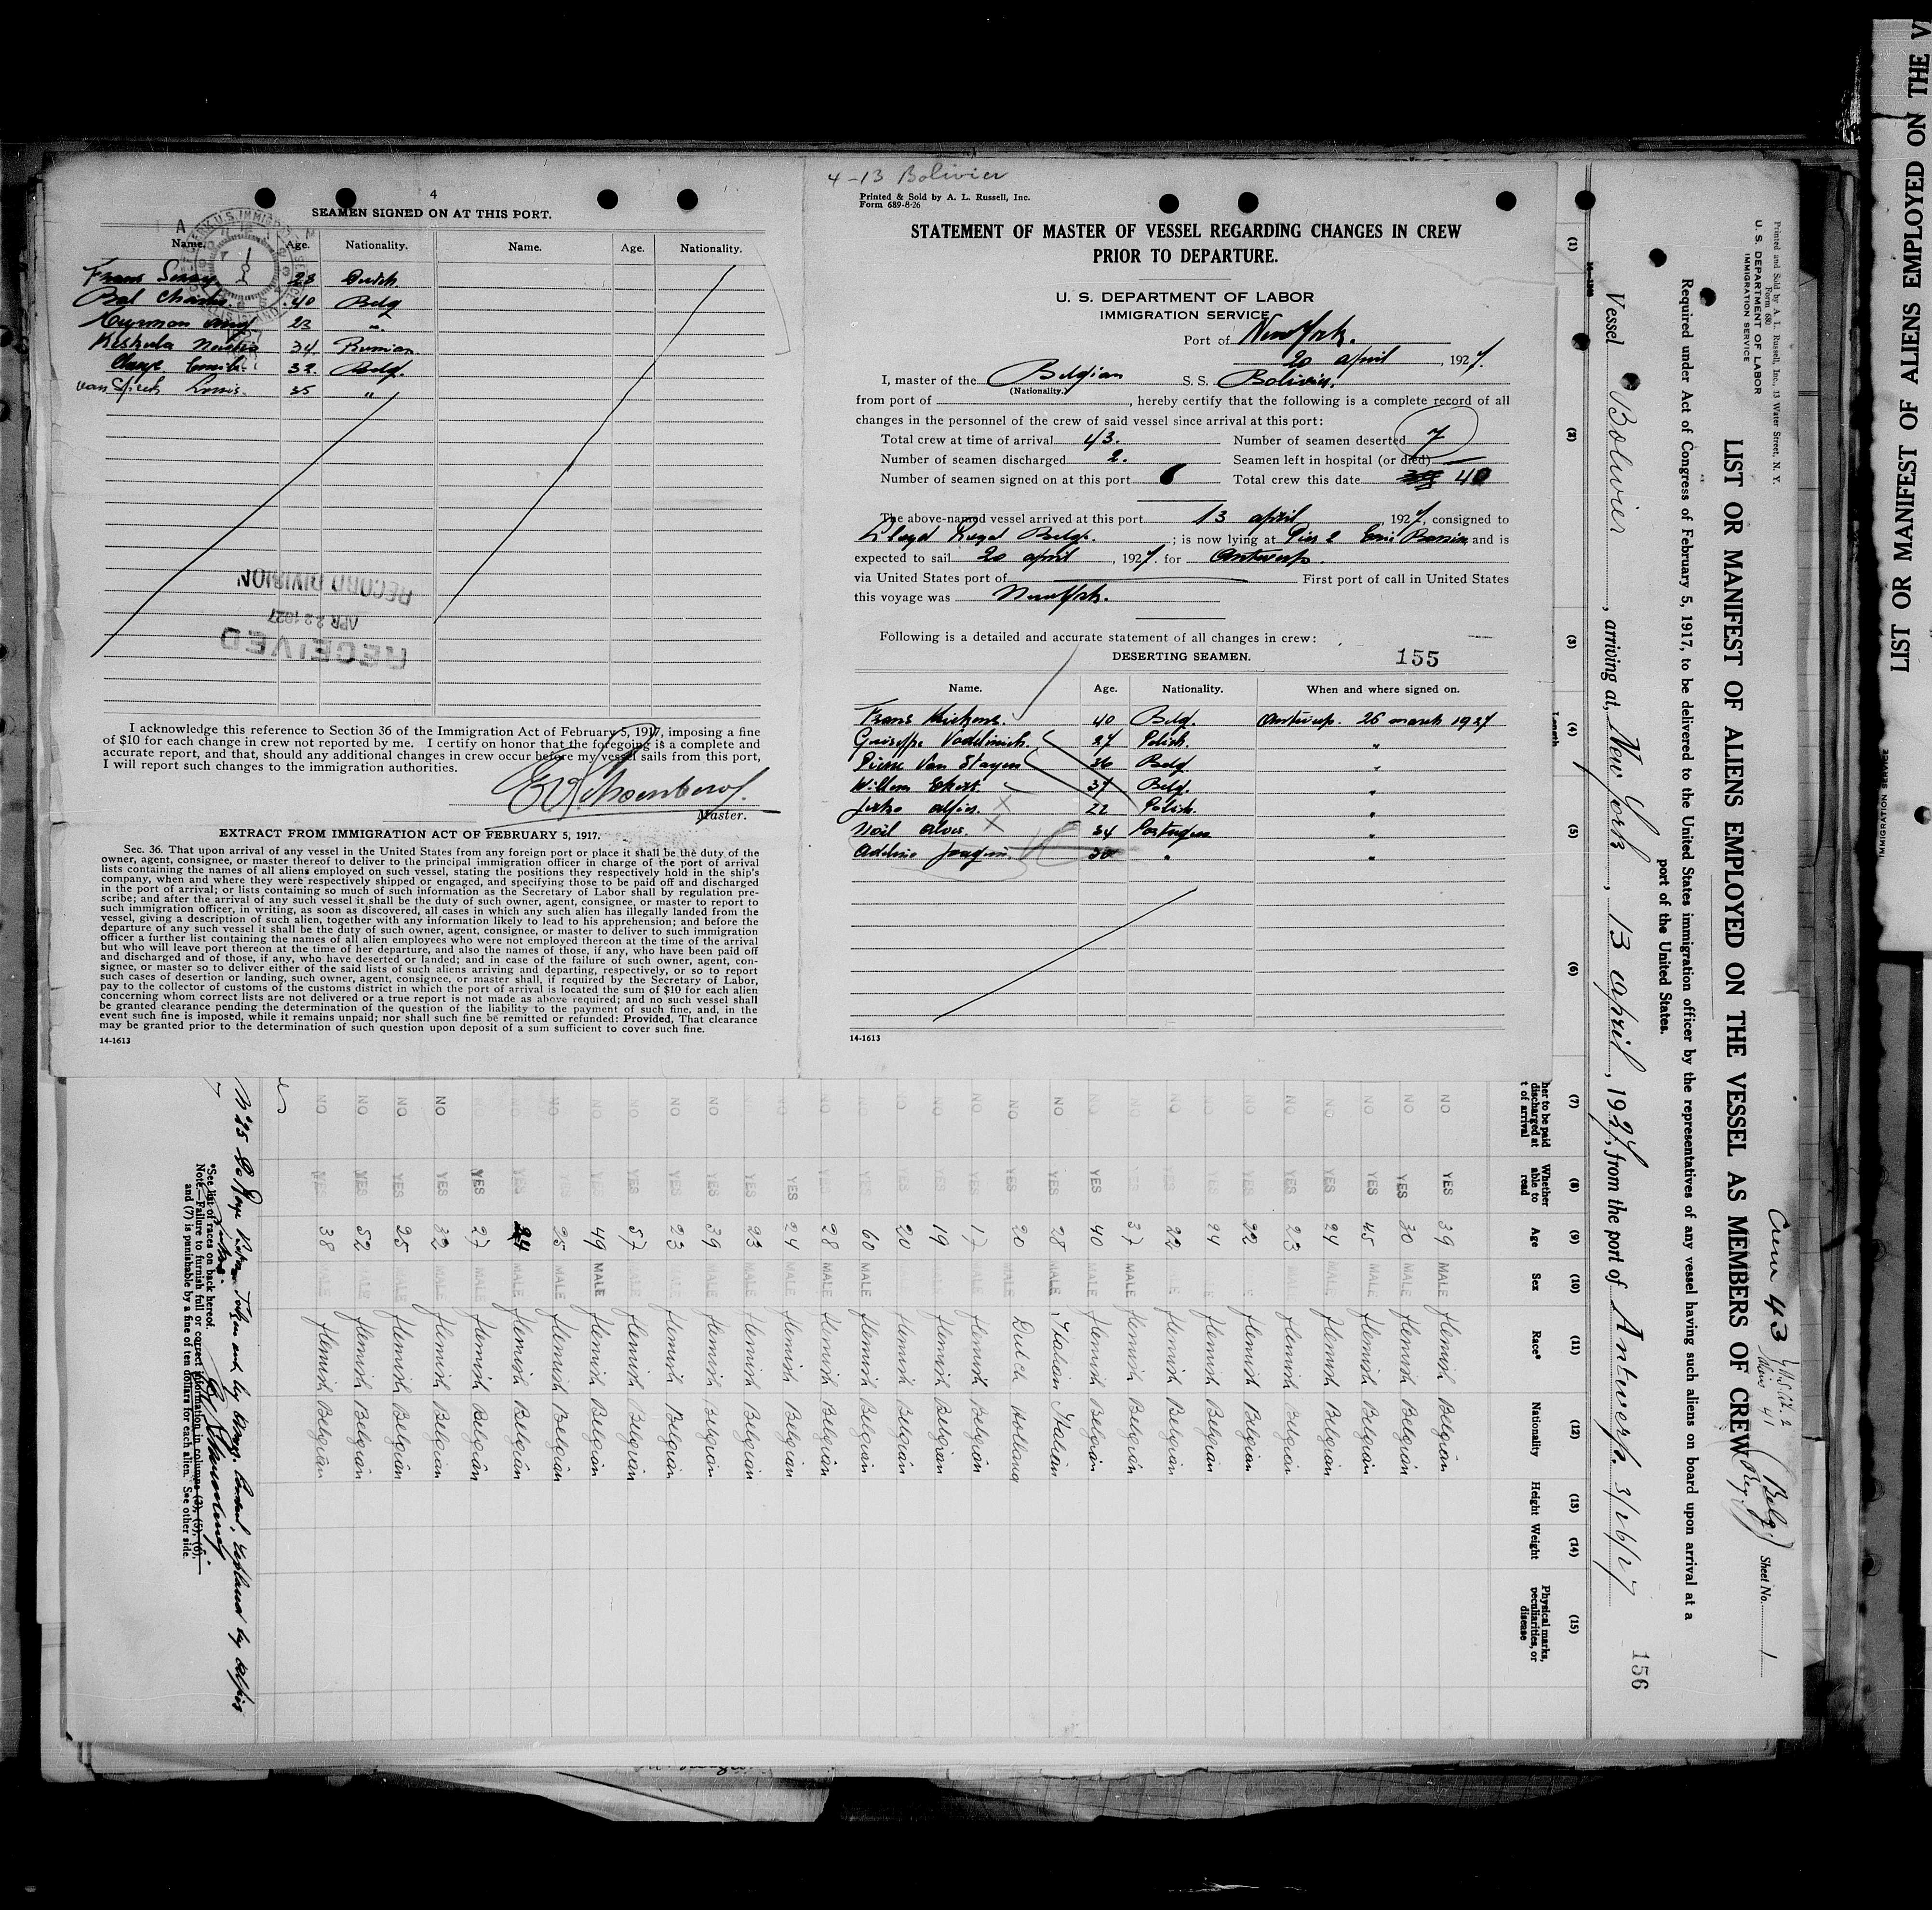 4
SEAMEN SIGNED ON AT THIS PORT.
Name. Age. Nationality. Name. Age. Nationality.
Frans 28 Dutch
Bal Charles 40 Belg
23 "
34 Russian
Emile 32 Belg.
van Louis. 35 "
RECORD DIVISION
APR 22 1927
RECEIVED
I acknowledge this reference to Section 36 of the Immigration Act of February 5, 1917, imposing a fine
of $10 for each change in crew not reported by me. I certify on honor that the foregoing is a complete and
accurate report, and that, should any additional changes in crew occur before my vessel sails from this port,
I will report such changes to the immigration authorities.
Master.
EXTRACT FROM IMMIGRATION ACT OF FEBRUARY 5, 1917.
Sec. 36. That upon arrival of any vessel in the United States from any foreign port or place it shall be the duty of the
owner, agent, consignee, or master thereof to deliver to the principal immigration officer in charge of the port of arrival
lists containing the names of all aliens employed on such vessel, stating the positions they respectively hold in the ship's
company, when and where they were respectively shipped or engaged, and specifying those to be paid off and discharged
in the port of arrival; or lists containing so much of such information as the Secretary of Labor shall by regulation pre-
scribe; and after the arrival of any such vessel it shall be the duty of such owner, agent, consignee, or master to report to
such immigration officer, in writing, as soon as discovered, all cases in which any such alien has illegally landed from the
vessel, giving a description of such alien, together with any information likely to lead to his apprehension; and before the
departure of any such vessel it shall be the duty of such owner, agent, consignee, or master to deliver to such immigration
officer a further list containing the names of all alien employees who were not employed thereon at the time of the arrival
but who will leave port thereon at the time of her departure, and also the names of those, if any, who have been paid off
and discharged and of those, if any, who have deserted or landed; and in case of the failure of such owner, agent, con-
signee, or master so to deliver either of the said lists of such aliens arriving and departing, respectively, or so to report
such cases of desertion or landing, such owner, agent, consignee, or master shall, if required by the Secretary of Labor,
pay to the collector of customs of the customs district in which the port of arrival is located the sum of $10 for each alien
concerning whom correct lists are not delivered or a true report is not made as above required; and no such vessel shall
be granted clearance pending the determination of the question of the liability to the payment of such fine, and, in the
event such fine is imposed, while it remains unpaid; nor shall such fine be remitted or refunded: Provided, That clearance
may be granted prior to the determination of such question upon deposit of a sum sufficient to cover such fine.
14-1613
4-13 Bolivier
Printed & Sold by A. L. Russell, Inc.
Form 689-8-26
STATEMENT OF MASTER OF VESSEL REGARDING CHANGES IN CREW
PRIOR TO DEPARTURE.
U. S. DEPARTMENT OF LABOR
IMMIGRATION SERVICE
Port of New York.
20 april, 1927.
I, master of the Belgian S. S. Bolivier.
(Nationality.)
from port of , hereby certify that the following is a complete record of all
changes in the personnel of the crew of said vessel since arrival at this port:
Total crew at time of arrival 43. Number of seamen deserted 7
Number of seamen discharged 2. Seamen left in hospital (or died) —
Number of seamen signed on at this port 6 Total crew this date 40
The above-named vessel arrived at this port 13 april, 1927, consigned to
Lloyd Royal Belge. ; is now lying at Pier 2 Erie Bassin and is
expected to sail 20 april, 1927. for Antwerp.
via United States port of First port of call in United States
this voyage was New York.
Following is a detailed and accurate statement of all changes in crew:
DESERTING SEAMEN.
155
Name. Age. Nationality. When and where signed on.
Frans 40 Belg. Antwerp. 26 march 1927
Guiseppe 27 Polish. "
Pierre Van Stayen 36 Belg "
Willem Ekert 37 Belg. "
22 Polish "
Alves. 34 Portugese "
Adelino Joaquin 30 " "
14-1613
Printed and Sold by A. L. Russell, Inc., 13 Water Street, N. Y.
Form 680
U. S. DEPARTMENT OF LABOR
IMMIGRATION SERVICE
Crew 43
U.S. Cit. 2
Aliens 41
(Belg)
Sheet No. 1
LIST OR MANIFEST OF ALIENS EMPLOYED ON THE VESSEL AS MEMBERS OF CREW
Required under Act of Congress of February 5, 1917, to be delivered to the United States immigration officer by the representatives of any vessel having such aliens on board upon arrival at a
port of the United States.
Vessel Bolivier, arriving at New York, 13 april, 1927, from the port of Antwerp. 3/26/27
156
(1) (2) (3) (4) (5) (6) (7) (8) (9) (10) (11) (12) (13) (14) (15)
Length
her to be paid
discharged at
t of arrival
Whether
able to
read
Age
Sex
Race*
Nationality
Height
Weight
Physical marks,
peculiarities, or
disease
NO YES 39 MALE Flemish Belgian
NO YES 30 MALE Flemish Belgian
NO YES 45 MALE Flemish Belgian
NO YES 24 MALE Flemish Belgian
NO YES 23 MALE Flemish Belgian
NO YES 22 MALE Flemish Belgian
NO YES 24 MALE Flemish Belgian
NO YES 22 MALE Flemish Belgian
NO YES 37 MALE Flemish Belgian
NO YES 40 MALE Flemish Belgian
NO YES 28 MALE Italian Italian
NO YES 20 MALE Dutch Holland
NO YES 17 MALE Flemish Belgian
NO YES 19 MALE Flemish Belgian
NO YES 20 MALE Flemish Belgian
NO YES 60 MALE Flemish Belgian
NO YES 28 MALE Flemish Belgian
NO YES 24 MALE Flemish Belgian
NO YES 23 MALE Flemish Belgian
NO YES 39 MALE Flemish Belgian
NO YES 23 MALE Flemish Belgian
NO YES 57 MALE Flemish Belgian
NO YES 49 MALE Flemish Belgian
NO YES 25 MALE Flemish Belgian
NO YES 24 MALE Flemish Belgian
NO YES 27 MALE Flemish Belgian
NO YES 32 MALE Flemish Belgian
NO YES 25 MALE Flemish Belgian
NO YES 52 MALE Flemish Belgian
NO YES 38 MALE Flemish Belgian
*See list of races on back hereof.
Note.—Failure to furnish full or correct information in columns (3), (5), (6),
and (7) is punishable by a fine of ten dollars for each alien. See other side.
LIST OR MANIFEST OF ALIENS EMPLOYED ON THE V
IMMIGRATION SERVICE